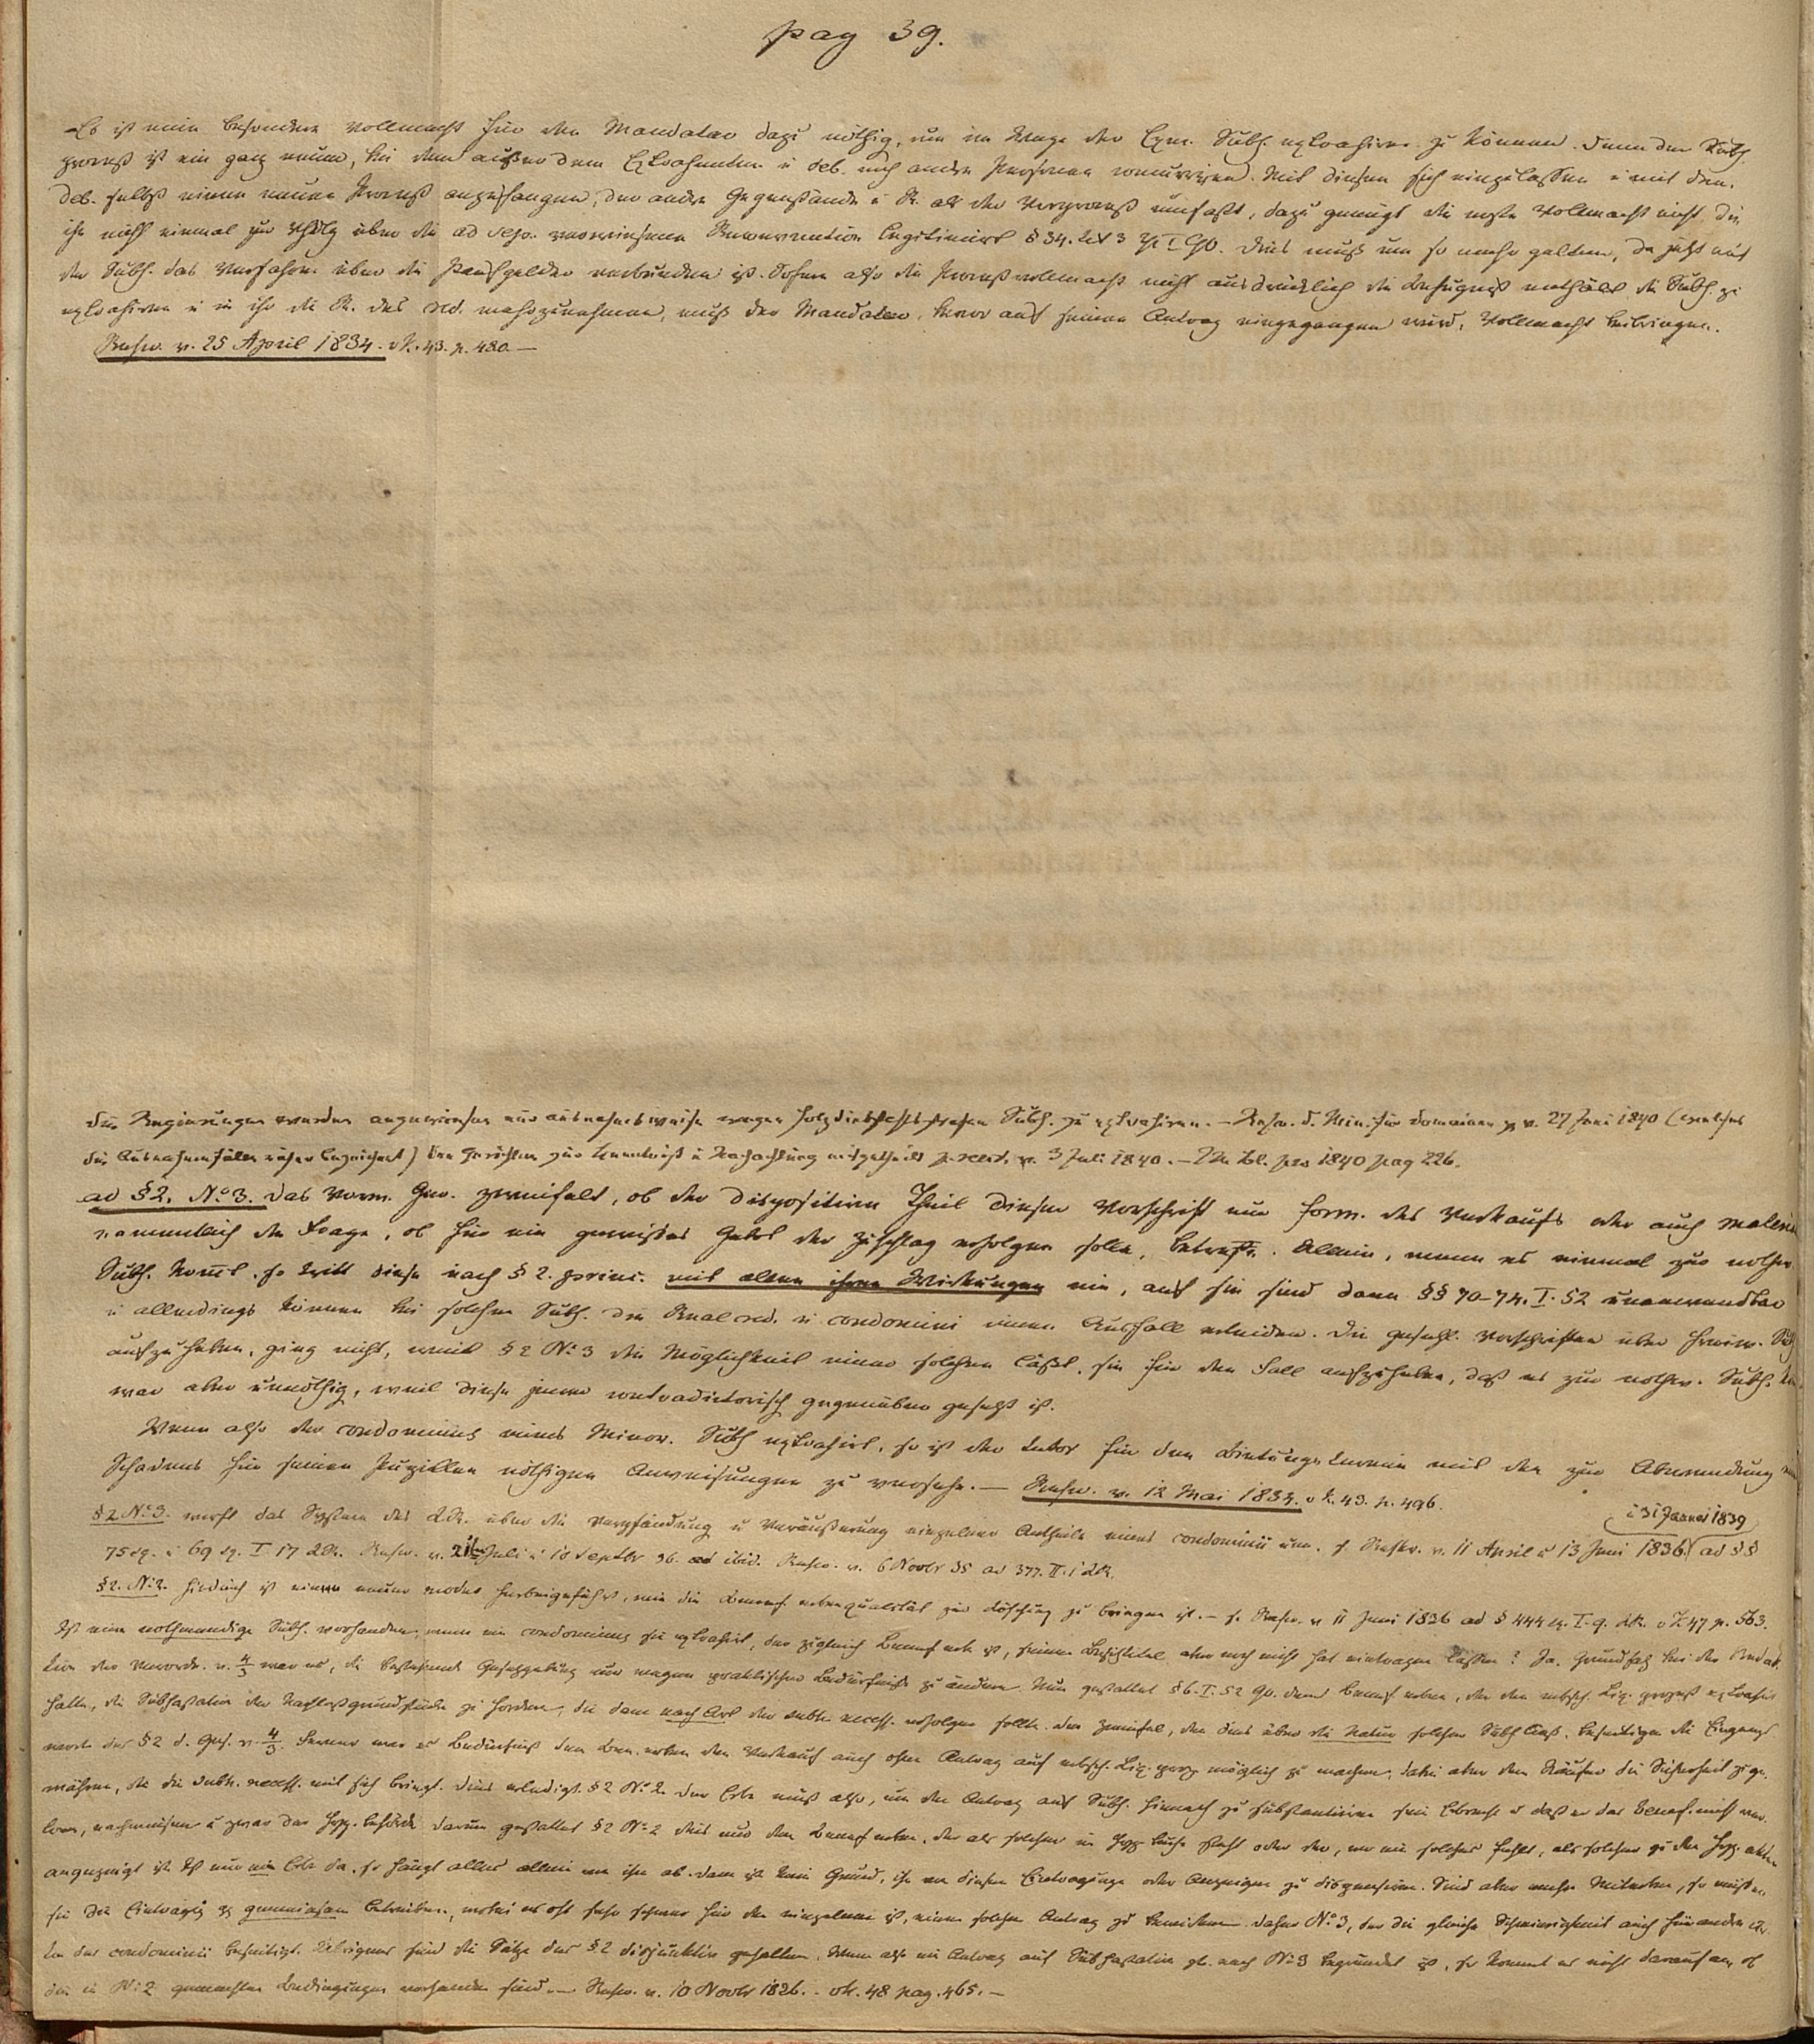 pag 39.
Es ist eine besondere Vollmacht für den Mandatar dazu nöthig, um im Wege der Exec. Subh. extrahiren zu können. Denn der Subh
prozeß ist ein ganz neuer, bei dem außer dem Extrahenten u deb. noch andre Personen concurriren. Mit diesen sich einzulassen u mit dem
deb. selbst einen neuen Prozeß anzufangen, der andre Gegenstände u R. als der Vorprozeß umfaßt, dazu genügt die erste Vollmacht nicht, die
ihn nicht einmal zur über die ad sep. verwiesene Reconvention legitimirt § 34. tit 3 I GO. Dies muß um so mehr gelten, da jetzt mit
der Subh. das Verfahren über die Kaufgelder verbunden ist. Sofern also die Prozeßvollmacht nicht ausdrücklich die Befugniß enthält die Subh. zu
extrahiren u in ihr die R. des cred. wahrzunehmen, muß der Mandatar, bevor auf seinen Antrag eingegangen wird, Vollmacht beibringen.
Rescr. v. 25 April 1834. v K. 43. p. 480. —
Die Regierungen werden angewiesen nur ausnahmsweise wegen Holzdiebstahlsstrafen Subh. zu extrahiren. — Rescr. d. Min. für Domainen v. 27 Juni 1840 (welches
die Ausnahmefälle näher bezeichnet) den Gerichten zur Kenntniß u Nachachtung mitgetheilt p. rescr. v. 3 Juli 1840. — Bl. pro 1840 pag 226.
ad § 2. No 3. Das Ger. zweifelt, ob der dispositive Theil dieser Vorschrift nur form. des Verkaufs oder auch
namentlich die Frage, ob für ein gewisses Gebot der Zuschlag erfolgen solle, betreffe. Allein, wenn es einmal zur nothw.
Subh. kommt, so tritt diese nach § 2. princ. mit allen ihren Wirkungen ein, auf sie sind dann §§ 70–74. I. 52 unanwendbar
u allerdings können bei solchen Subh. die Realcred. u condomini einen Ausfall erleiden. Die gesetzl. Vorschriften über freiw. Subh
aufzuheben, ging nicht, weil § 2 No 3 die Möglichkeit einer solchen läßt, sie für den Fall aufzuheben, daß es zur nothw. Subh.
war aber unnöthig, weil diese jener contradictorisch gegenüber gesetzt ist.
Wenn also der condominus eines Minor. Subh extrahirt, so ist der tutor für den Bietungstermin mit den zur Abwendung
Schadens für seinen Pupillen nöthigen Anweisungen zu versehn. — Rescr. v. 12 Mai 1834. v K. 43. p. 496.
u 31 Januar 1839
§ 2 No 3. wirft das System des LR. über die Verpfändung u Veräußerung einzelner Antheile eines condominii um. s. Rescr. v. 11 April u 13 Juni 1836. ad §§
75 sq. u 69 sq. I 17 LR. Rescr. v. Juli u 10 Septbr 36. ad ibid. Rescr. v. 6 Novbr 35 ad 377. II. 1 LR.
§ 2. No 2. Hiedurch ist einen neuer modus herbeigeführt, wie die qualität zur Löschung zu bringen ist. — s. Rescr. v 11 Juni 1836 ad § 444 sq. I. 9. LR. v K 47 p. 563.
Ist eine nothwendige Subh. vorhanden, wenn ein condominus sie extrahirt, der zugleich Benef. erbe ist, seinen Besitztitel aber noch nicht hat eintragen lassen? Ja. Grundsatz bei der Redak-
tion der Verordn. v. 4/3 war es, die bestehende Gesetzgebung nur wegen praktischer Bedürfnisse zu ändern. Nun gestattet § 6. I. 52 GO. dem Benef. erben, der den erbsch. Liq. prozeß extrahirt
hatte, die Subhastation der Nachlaßgrundstücke zu fordern, die dann nach Art der subh. necess. erfolgen sollte. Den Zweifel, den dies über die Natur solcher Subh. ließ, beseitigen die Eingangs
worte des § 2 d. Ges. v. 4/3. Ferner war es Bedürfniß dem Ben. erben den Verkauf auch ohne Antrag auf erbsch. Liq. proz. möglich zu machen, dabei aber dem Käufer die Sicherheit zu ge-
währen, die die subh. necess. mit sich bringt. Dies erledigt § 2 No 2. Der Erbe muß also, um den Antrag auf Subh. hiernach zu substantiiren sein Erbrecht u daß er das Benef. nicht ver-
loren, nachweisen u zwar der Hyp. behörde. Darum gestattet § 2 No 2 dies nur dem Benef. erben, der als solcher im Hyp. buche steht oder der, wo ein solches fehlt, als solcher zu den Hyp. akten
angezeigt ist. Ist nur ein Erbe da, so hängt alles allein von ihm ab. Dann ist kein Grund, ihn von diesen Eintragungen oder Anzeigen zu dispensiren. Sind aber mehr Miterben, so müssen
sie die Eintragung gemeinsam betreiben, wobei es oft sehr schwer für den einzelnen ist, einen solchen Antrag zu bewirken. Daher No 3, der die gleiche Schwierigkeit auch für andre Ar-
ten des condominii beseitigt. Uebrigens sind die Sätze des § 2 disjunktiv gehalten. Wenn also ein Antrag auf Subhastation gl. nach No 3 begründet ist, so kommt es nicht darauf an, ob
die in No 2 gemachten Bedingungen vorhanden sind. — Rescr. v. 10 Novbr 1836. v K. 48 pag. 465. —